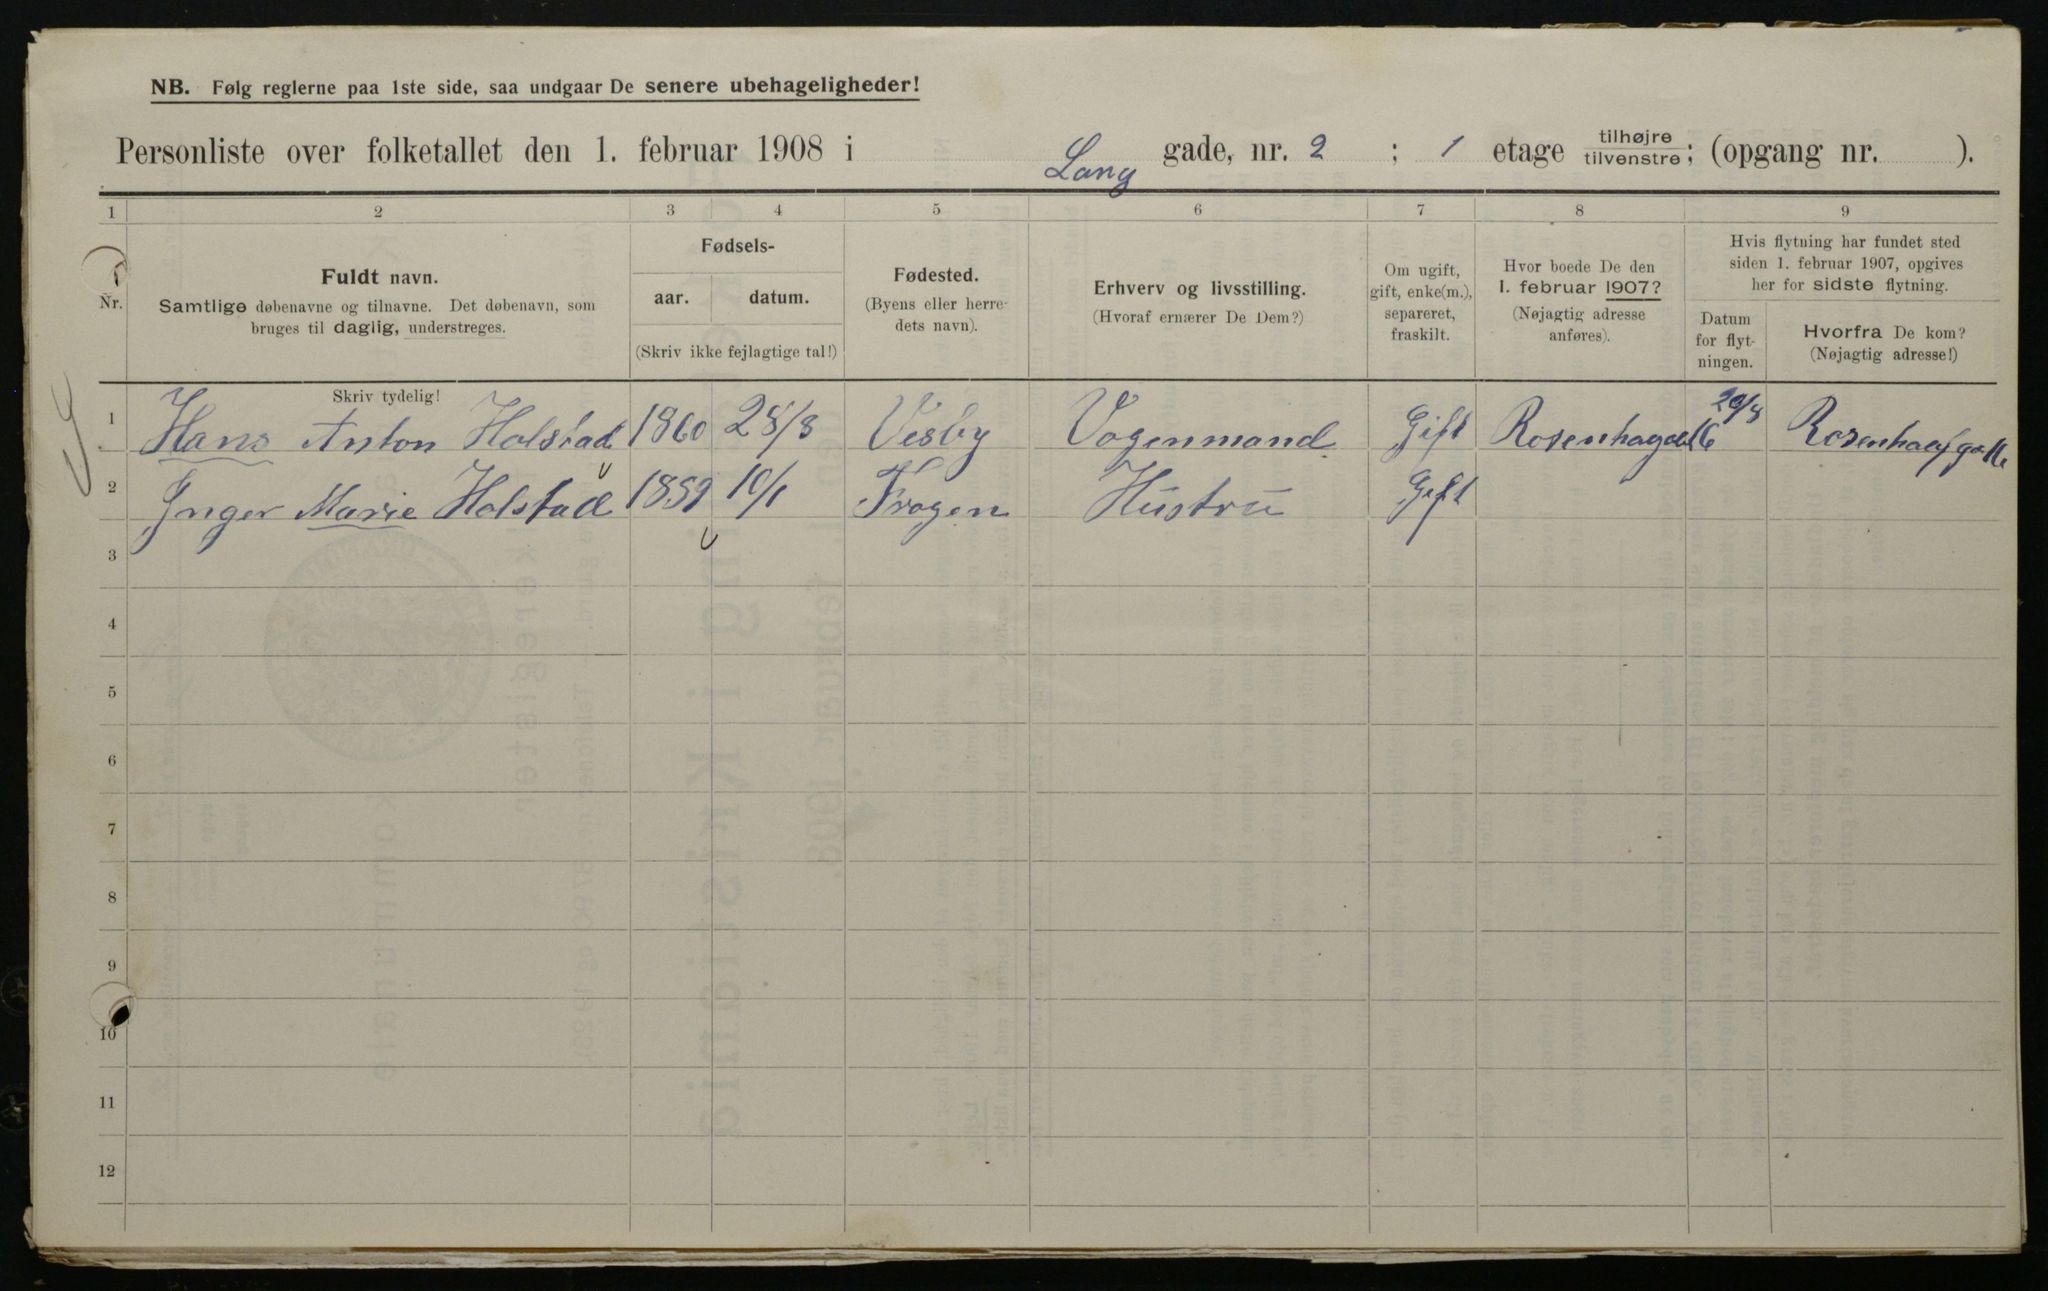 NB. Følg reglerne paa 1ste side, saa undgaar De senere ubehageligheder!
Personliste over folketallet den 1. februar 1908 i Lang gade, nr. 2 ; 1 etage tilhøjre/tilvenstre; (opgang nr. ).
1 2 3 4 5 6 7 8 9
Nr.
Fuldt navn.
Samtlige døbenavne og tilnavne. Det døbenavn, som
bruges til daglig, understreges.
Skriv tydelig!
Fødsels-
aar. datum.
(Skriv ikke fejlagtige tal!)
Fødested.
(Byens eller herre-
dets navn).
Erhverv og livsstilling.
(Hvoraf ernærer De Dem?)
Om ugift,
gift, enke(m.),
separeret,
fraskilt.
Hvor boede De den
1. februar 1907?
(Nøjagtig adresse
anføres).
Hvis flytning har fundet sted
siden 1. februar 1907, opgives
her for sidste flytning.
Datum
for flyt-
ningen.
Hvorfra De kom?
(Nøjagtig adresse!)
1 Hans Anton Holstad 1860 28/8 Vesby Vognmand Gift Rosenhagade 16 29/8
2 Inger Marie Holstad 1859 10/1 Frogen Hustru Gift
3
4
5
6
7
8
9
10
11
12